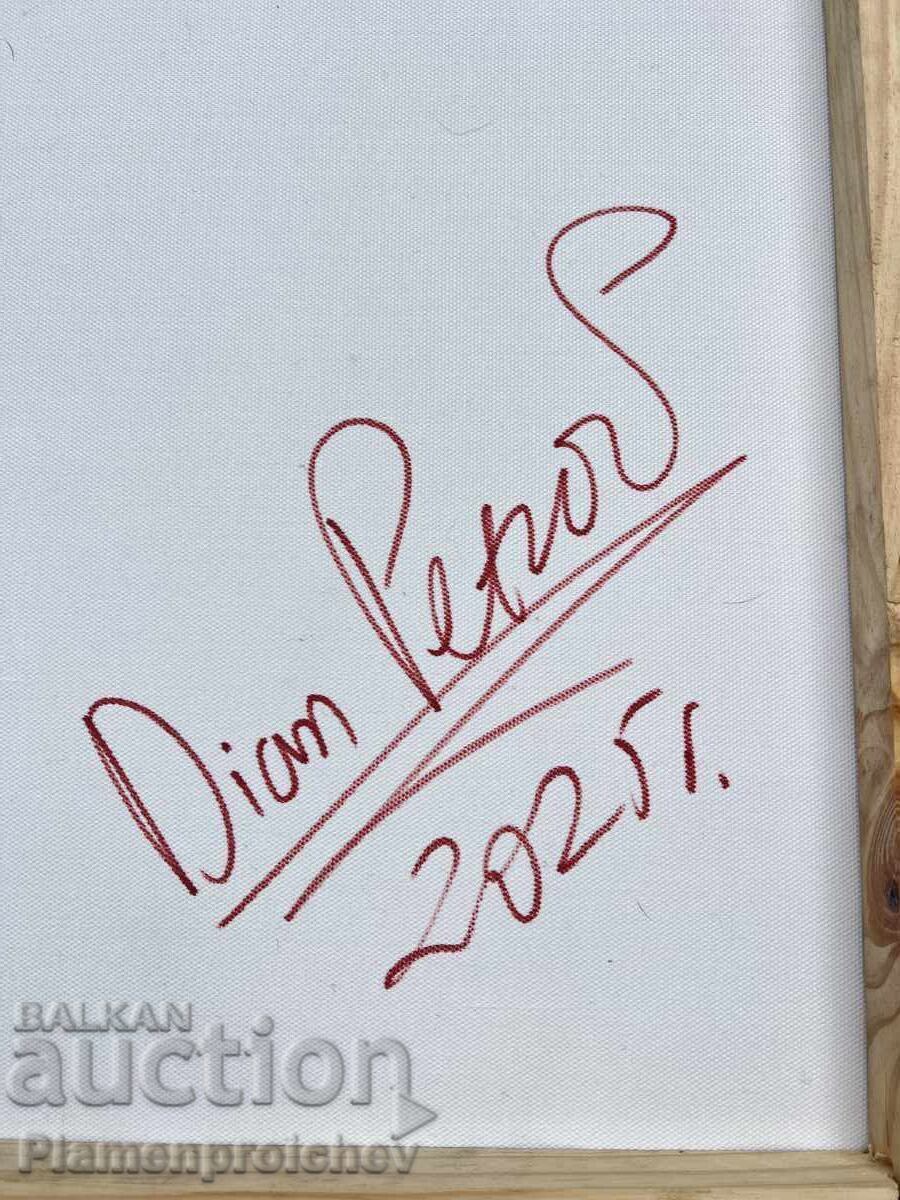 Dian Petrov
2025 г.
BALKAN
auction
Plamenprolchev